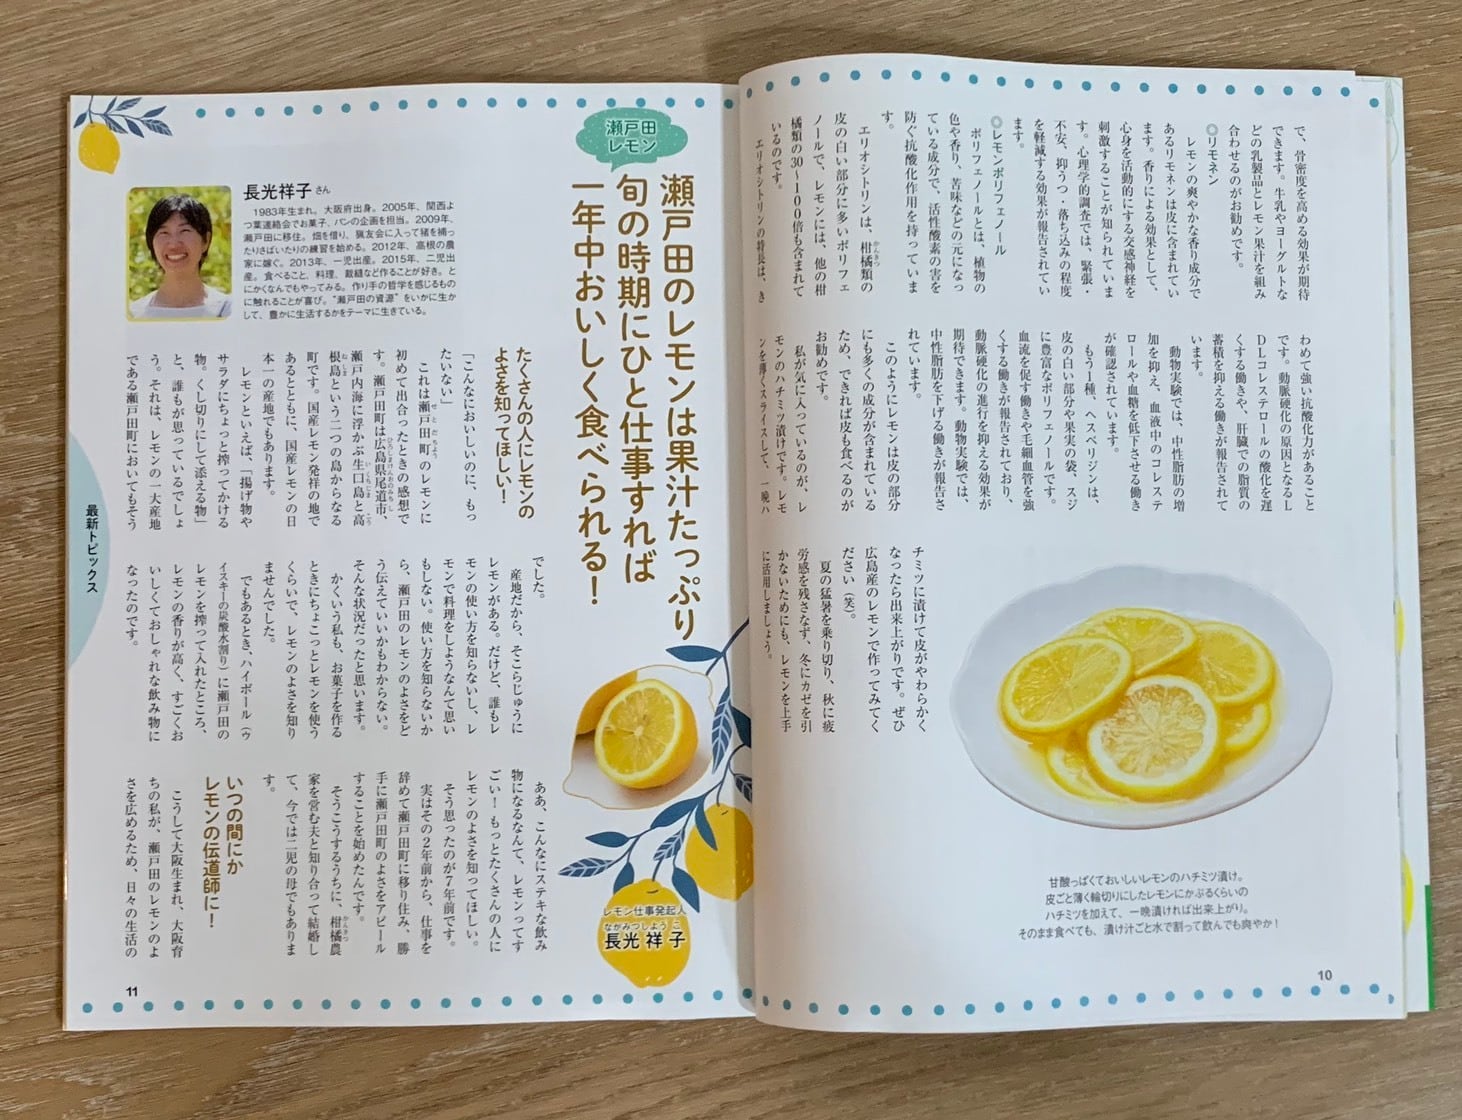 で、骨密度を高める効果が期待
できます。牛乳やヨーグルトな
どの乳製品とレモン果汁を組み
合わせるのがお勧めです。
◎リモネン
レモンの爽やかな香り成分で
あるリモネンは皮に含まれてい
ます。香りによる効果として、
心身を活動的にする交感神経を
刺激することが知られていま
す。心理学的調査では、緊張・
不安、抑うつ・落ち込みの程度
を軽減する効果が報告されてい
ます。
◎レモンポリフェノール
ポリフェノールとは、植物の
色や香り、苦味などの元になっ
ている成分で、活性酸素の害を
防ぐ抗酸化作用を持っていま
す。
エリオシトリンは、柑橘類の
かんきつ
皮の白い部分に多いポリフェ
ノールで、レモンには、他の柑
橘類の30〜100倍も含まれて
いるのです。
エリオシトリンの特長は、き
わめて強い抗酸化力があること
です。動脈硬化の原因となるL
DLコレステロールの酸化を遅
くする働きや、肝臓での脂質の
蓄積を抑える働きが報告されて
います。
動物実験では、中性脂肪の増
加を抑え、血液中のコレステ
ロールや血糖を低下させる働き
が確認されています。
もう1種、ヘスペリジンは、
皮の白い部分や果実の袋、スジ
に豊富なポリフェノールです。
血流を促す働きや毛細血管を強
くする働きが報告されており、
動脈硬化の進行を抑える効果が
期待できます。動物実験では、
中性脂肪を下げる働きが報告さ
れています。
このようにレモンは皮の部分
にも多くの成分が含まれている
ため、できれば皮も食べるのが
お勧めです。
私が気に入っているのが、レ
モンのハチミツ漬けです。レモ
ンを薄くスライスして、一晩ハ
チミツに漬けて皮がやわらかく
なったら出来上がりです。ぜひ
広島産のレモンで作ってみてく
ださい(笑)。
夏の猛暑を乗り切り、秋に疲
労感を残さなず、冬にカゼを引
かないためにも、レモンを上手
に活用しましょう。
甘酸っぱくておいしいレモンのハチミツ漬け。
皮ごと薄く輪切りにしたレモンにかぶるくらいの
ハチミツを加えて、一晩漬ければ出来上がり。
そのまま食べても、漬け汁ごと水で割って飲んでも爽やか!
10
瀬戸田
レモン
瀬戸田のレモンは果汁たっぷり
旬の時期にひと仕事すれば
一年中おいしく食べられる!
レモン仕事発起人
ながみつしょうこ
長光祥子
長光祥子さん
1983年生まれ。大阪府出身。2005年、関西よ
つ葉連絡会でお菓子、パンの企画を担当。2009年、
瀬戸田に移住。畑を借り、猟友会に入って猪を捕っ
たりさばいたりの練習を始める。2012年、高根の農
家に嫁ぐ。2013年、一児出産。2015年、二児出
産。食べること、料理、裁縫など作ることが好き。と
にかくなんでもやってみる。作り手の哲学を感じるもの
に触れることが喜び。“瀬戸田の資源”をいかに生か
して、豊かに生活するかをテーマに生きている。
たくさんの人にレモンの
よさを知ってほしい!
「こんなにおいしいのに、もっ
たいない」
これは瀬戸田町のレモンに
せとだちょう
初めて出合ったときの感想で
す。瀬戸田町は広島県尾道市、
ひろしまけんおのみちし
瀬戸内海に浮かぶ生口島と高
いくちじま こう
根島という二つの島からなる
ねしま
町です。国産レモン発祥の地で
あるとともに、国産レモンの日
本一の産地でもあります。
レモンといえば、「揚げ物や
サラダにちょっと搾ってかける
物。くし切りにして添える物」
と、誰もが思っているでしょ
う。それは、レモンの一大産地
である瀬戸田町においてもそう
でした。
産地だから、そこらじゅうに
レモンがある。だけど、誰もレ
モンの使い方を知らないし、レ
モンで料理をしようなんて思い
もしない。使い方を知らないか
ら、瀬戸田のレモンのよさをど
う伝えていいかもわからない。
そんな状況だったと思います。
かくいう私も、お菓子を作る
ときにちょこっとレモンを使う
くらいで、レモンのよさを知り
ませんでした。
でもあるとき、ハイボール(ウ
イスキーの炭酸水割り)に瀬戸田の
レモンを搾って入れたところ、
レモンの香りが高く、すごくお
いしくておしゃれな飲み物に
なったのです。
ああ、こんなにステキな飲み
物になるなんて、レモンってす
ごい!もっとたくさんの人に
レモンのよさを知ってほしい。
そう思ったのが7年前です。
実はその2年前から、仕事を
辞めて瀬戸田町に移り住み、勝
手に瀬戸田町のよさをアピール
することを始めたんです。
そうこうするうちに、柑橘農
かんきつ
家を営む夫と知り合って結婚し
て、今では二児の母でもありま
す。
いつの間にか
レモンの伝道師に!
こうして大阪生まれ、大阪育
ちの私が、瀬戸田のレモンのよ
さを広めるため、日々の生活の
最新トピックス
11